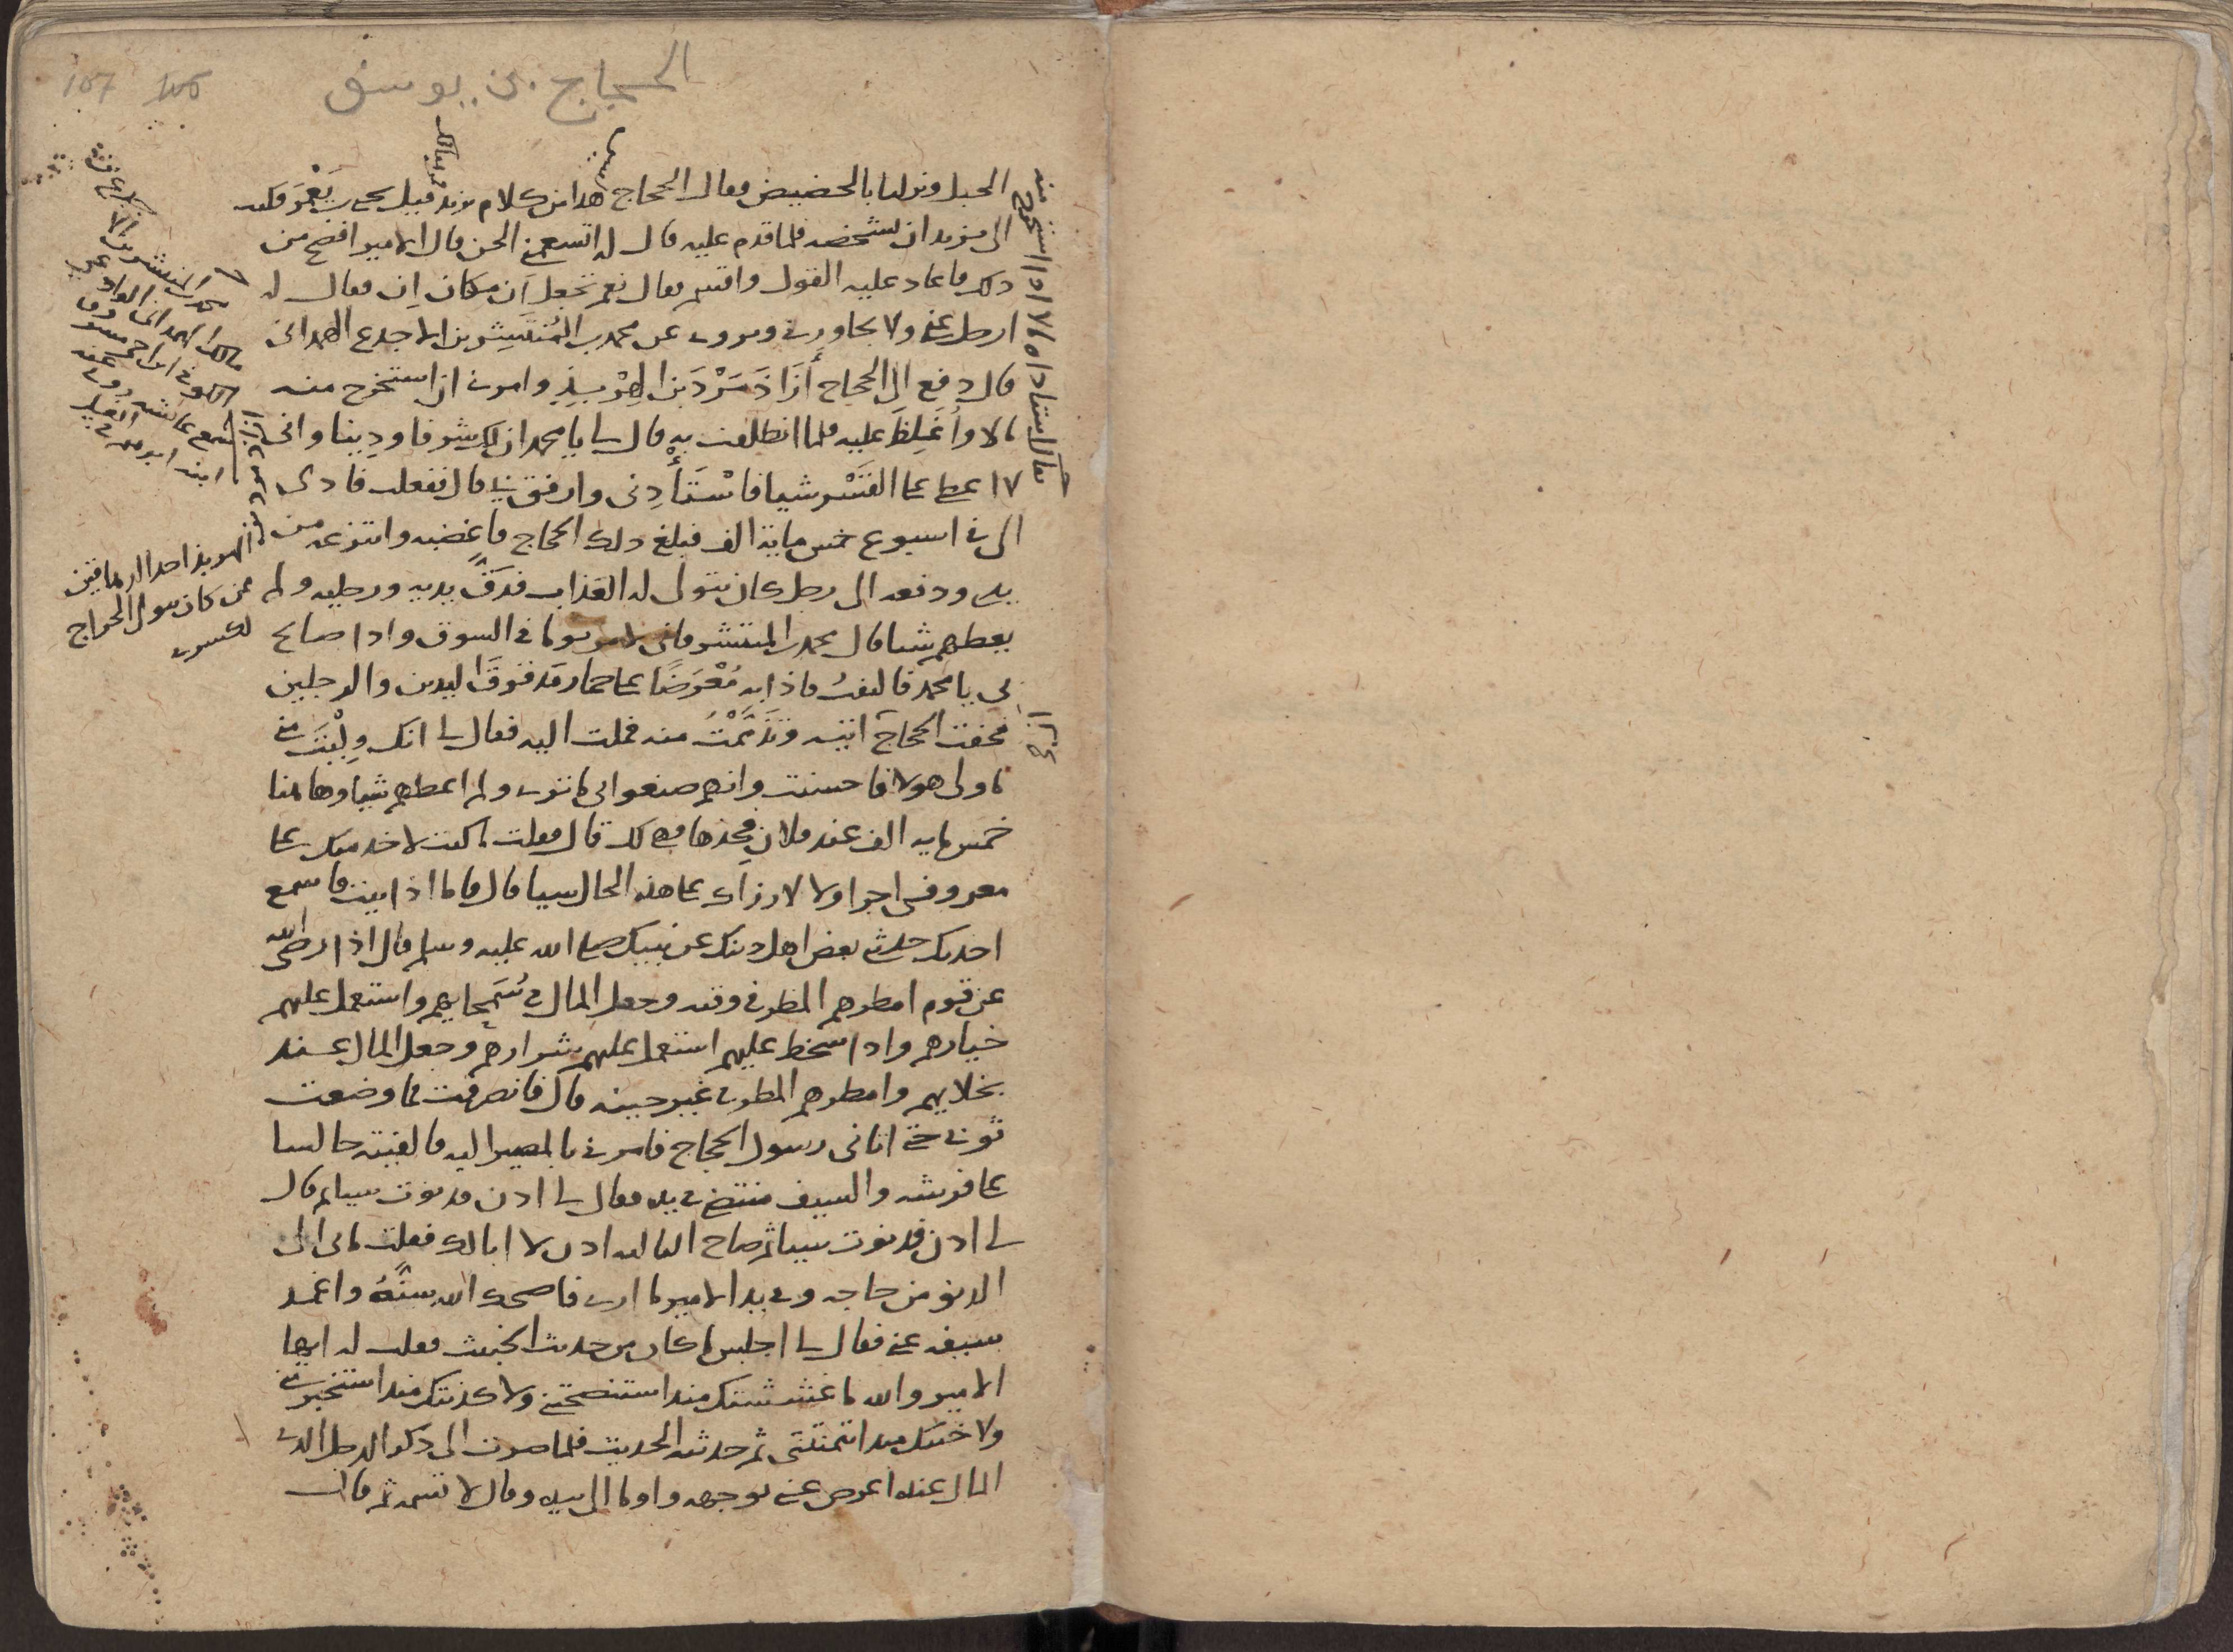 الحجاج بن يوسف
107 106
الجبل ونزلنا بالحضيض فقال الحجاج هذا من كلام يزيد فقيل يحيى بن يعمر فكتب
الى يزيد ان يشخصه فلما قدم عليه قال له اتسمعني الحن قال الامير افصح من
ذلك فاعاد عليه القول واقسم فقال نعم تجعل أن مكان إن فقال له
ارحل عني ولا تجاورني ويروى عن محمد بن المنتشر بن الاجدع الهمداني
قال دفع الى الحجاج أزاذمرد بن الهربذ وامرني ان استخرج منه
مالا وأغلظ عليه فلما انطلقت به قال لي يا محمد ان لك شرفا ودينا واني
لا اعطي على القسر شيا فاستأدني وارفق بي قال ففعلت فادى
الي في اسبوع خمس ماية الف فبلغ ذلك الحجاج فاغضبه وانتزعه من
يدي ودفعه الى رجل كان يتولى له العذاب فدق يديه ورجليه ولم
يعطهم شيا قال محمد بن المنتشر فاني لامر يوما في السوق واذا صائح
بي يا محمد فالتفت فاذا به معرضا على حمار مدقوق اليدين والرجلين
فخفت الحجاج ان اتيته وتذممت منه فملت اليه فقال لي انك وليت مني
ما ولى هولا فاحسنت وانهم صنعوا بي ما ترى ولم اعطهم شيا وهاهنا
خمس ماية الف عند فلان فخذها فهي لك قال فقلت ما كنت لاخذ منك على
معروفي اجرا ولا لارزاك على هذه الحال شيا قال فاما اذ ابيت فاسمع
احدثك حدثني بعض اهل دينك عن نبيك صلى الله عليه وسلم قال اذا رضي الله
عن قوم امطرهم المطر في وقته وجعل المال في سمحايهم واستعمل عليهم
خيارهم واذا سخط عليهم استعمل عليهم شرارهم وجعل المال عند
بخلايهم وامطرهم المطر في غير حينه قال فانصرفت فما وضعت
ثوبي حتى اتاني رسول الحجاج فامرني بالمصير اليه فالفيته جالسا
على فرشه والسيف منتضى في يده فقال لي ادن فدنوت شيا ثم قال
لي ادن فدنوت شيا ثم صاح الثالثة ادن لا ابا لك فقلت ما بي الى
الدنو من حاجه وفي يد الامير ما ارى فاضحك الله سنه واغمد
سيفه عني فقال لي اجلس ما كان من حديث الخبيث فقلت له ايها
الامير والله ما غششتك منذ استنصحتني ولا كذبتك منذ استخبرتني
ولا خنتك منذ ائتمنتني ثم حدثته الحديث فلما صرت الى ذكر الرجل الذي
المال عنده اعرض عني بوجهه واوما الي بيده وقال لا تسمه ثم قال
محمد بن المنتشر بن الاجدع بن
مالك الهمداني الوادعي
الكوفي ابن اخي مسروق
سمع عائشة روى عنه
ابنه ابرهيم
الهربذ احد
ممن كان يتولى الخراج
لكسرى
يقال استاداه الاداء استخرج منه